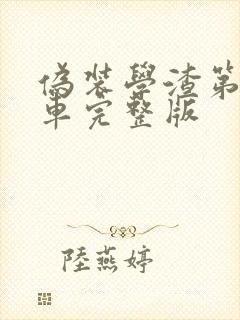 偽裝學渣第
車完整版
陸燕婷